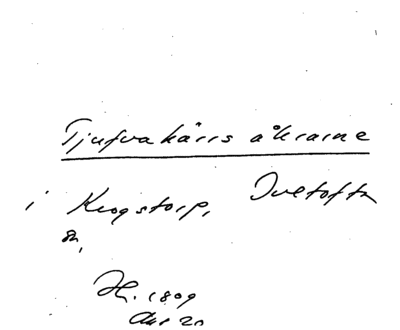 Tjufvakärrs åkrarne
i Krogstorp, Duetofta
sn,
H. 1809
Akt 20